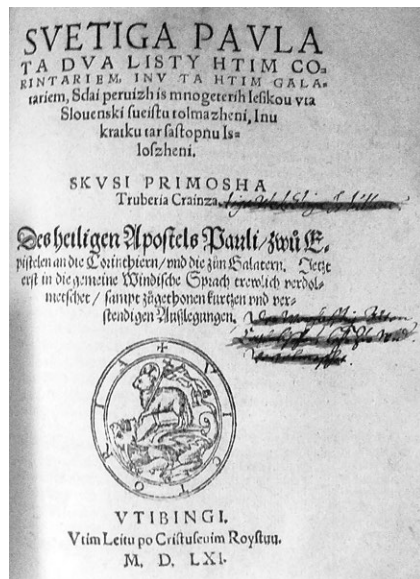 SVETIGA PAVLA
TA DVA LISTY HTIM CO-
RINTARIEM, INV TA HTIM GALA-
tariem, Sdai peruizh is mnogeterih Iesikou vta
Slouenski sueistu tolmazheni, Inu
kratku tar sastopnu Is-
loszheni.
SKVSI PRIMOSHA
Truberia Crainza
Des heiligen Apostels Pauli/ zwů E-
pistelen an die Corinthiern/ vnd die zůn Galatern. Jetzt
erst in die gemeine Windische Sprach trewlich verdol-
metschet/ sampt zůgethonen kurtzen vnd ver-
stendigen Außlegungen.
VICTORIA
VTIBINGI.
Vtim Leitu po Cristuseuim Roystuu.
M. D. LXI.